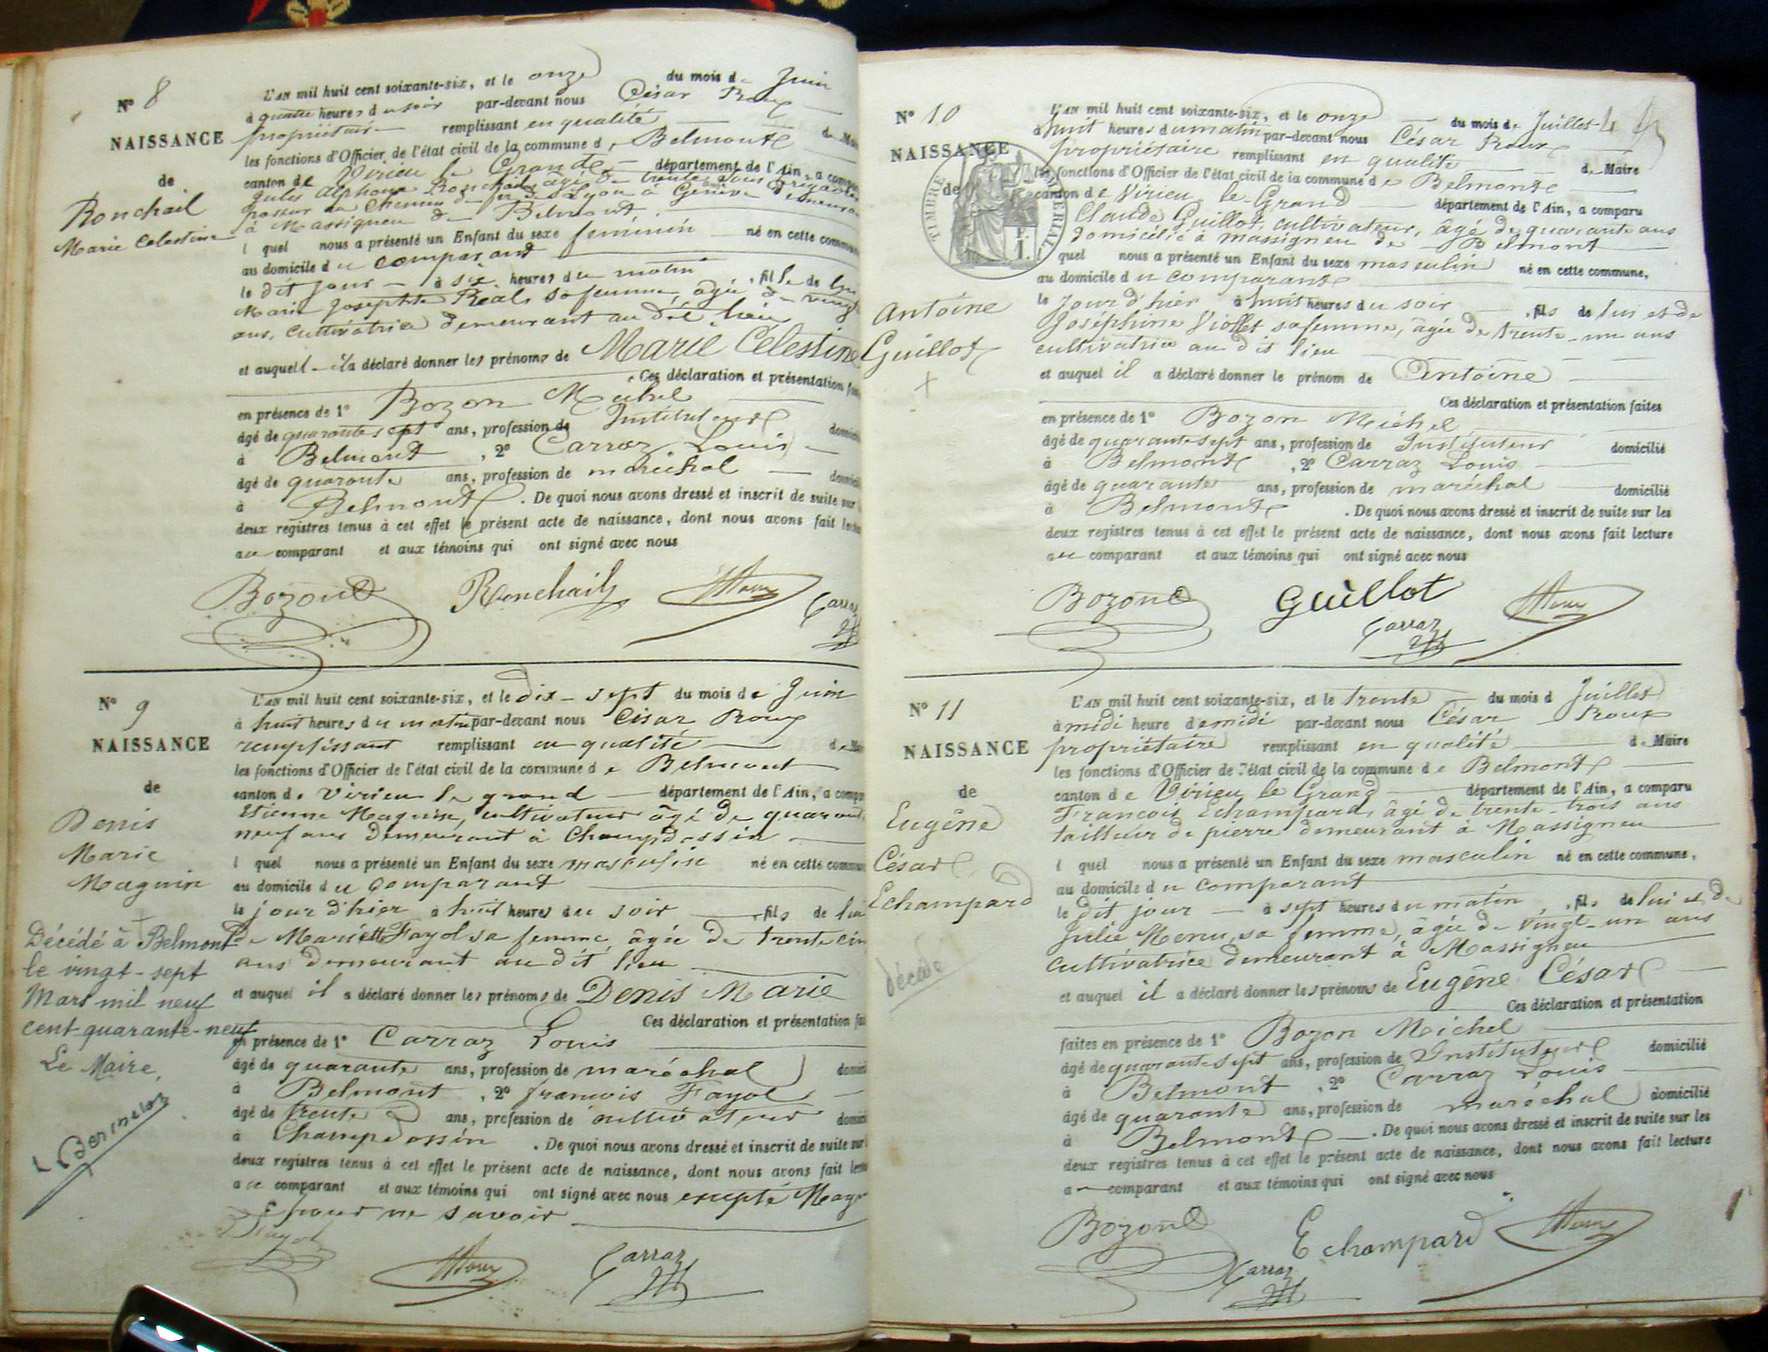 N° 8
NAISSANCE
de
Ronchail
Marie Celestine
L'AN mil huit cent soixante-six, et le onze du mois de Juin
à quatre heures du soir par-devant nous César Roux
propriétaire remplissant en qualité de Maire
les fonctions d'Officier de l'état civil de la commune de Belmont
canton de Virieu le Grand département de l'Ain, a comparu
Jules Alphonse Ronchail, âgé de trente
poseur au Chemin de fer de Lyon à Genève
à Massignieu de Belmont
lequel nous a présenté un Enfant du sexe féminin né en cette commune
au domicile du comparant
le dit jour à six heures du matin, fille de lui
Marie Josephte Réal, sa femme, âgée de vingt
ans, cultivatrice demeurant au dit lieu
et auquel il a déclaré donner les prénoms de Marie Célestine
Ces déclaration et présentation
en présence de 1° Bozon Michel
âgé de quarante sept ans, profession de Instituteur
à Belmont, 2° Carraz Louis
âgé de quarante ans, profession de maréchal
à Belmont. De quoi nous avons dressé et inscrit de suite sur
deux registres tenus à cet effet le présent acte de naissance, dont nous avons fait lecture
au comparant et aux témoins qui ont signé avec nous
Bozon Ronchail Roux Carraz
N° 9
NAISSANCE
de
Denis
Marie
Maguin
Décédé à Belmont
le vingt-sept
Mars mil neuf
cent quarante-neuf
Le Maire,
L'AN mil huit cent soixante-six, et le dix-sept du mois de Juin
à huit heures du matin par-devant nous César Roux
remplissant remplissant en qualité de Maire
les fonctions d'Officier de l'état civil de la commune de Belmont
canton de Virieu le grand département de l'Ain, a comparu
Etienne Maguin, cultivateur âgé de quarante
neuf ans demeurant à Champdossin
lequel nous a présenté un Enfant du sexe masculin né en cette commune
au domicile du comparant
le jour d'hier à huit heures du soir fils de lui
de Mariette Fayol sa femme, âgée de trente cinq
ans demeurant au dit lieu
et auquel il a déclaré donner les prénoms de Denis Marie
Ces déclaration et présentation
en présence de 1° Carraz Louis
âgé de quarante ans, profession de maréchal
à Belmont, 2° françois Fayol
âgé de trente ans, profession de cultivateur
à Champdossin. De quoi nous avons dressé et inscrit de suite sur
deux registres tenus à cet effet le présent acte de naissance, dont nous avons fait lecture
au comparant et aux témoins qui ont signé avec nous excepté
pour ne savoir
Fayol Roux Carraz
N° 10
NAISSANCE
de
TIMBRE IMPÉRIAL
Antoine
Guillot
L'AN mil huit cent soixante-six, et le onze du mois de Juillet
à huit heures du matin par-devant nous César Roux
propriétaire remplissant en qualité de Maire
les fonctions d'Officier de l'état civil de la commune de Belmont
canton de Virieu le Grand département de l'Ain, a comparu
Claude Guillot, cultivateur, âgé de quarante ans
domicilié à massignieu de Belmont
quel nous a présenté un Enfant du sexe masculin né en cette commune,
au domicile du comparant
le jour d'hier à huit heures du soir, fils de lui et de
Joséphine Viollet sa femme, âgée de trente-un ans
cultivatrice au dit lieu
et auquel il a déclaré donner le prénom de Antoine
Ces déclaration et présentation faites
en présence de 1° Bozon Michel
âgé de quarante sept ans, profession de Instituteur domicilié
à Belmont, 2° Carraz Louis
âgé de quarante ans, profession de maréchal domicilié
à Belmont. De quoi nous avons dressé et inscrit de suite sur les
deux registres tenus à cet effet le présent acte de naissance, dont nous avons fait lecture
au comparant et aux témoins qui ont signé avec nous
Bozon Guillot Carraz Roux
N° 11
NAISSANCE
de
Eugène
César
Echampard
décédé
L'AN mil huit cent soixante-six, et le trente du mois d Juillet
à midi heure de midi par-devant nous César Roux
propriétaire remplissant en qualité de Maire
les fonctions d'Officier de l'état civil de la commune de Belmont
canton de Virieu le Grand département de l'Ain, a comparu
François Echampard, âgé de trente-trois ans
tailleur de pierre demeurant à Massignieu
lequel nous a présenté un Enfant du sexe masculin né en cette commune,
au domicile du comparant
le dit jour à sept heures du matin, fils de lui et de
Julie Menu, sa femme, âgée de vingt-un ans
cultivatrice demeurant à Massignieu
et auquel il a déclaré donner les prénoms de Eugène César
Ces déclaration et présentation
faites en présence de 1° Bozon Michel
âgé de quarante sept ans, profession de Instituteur domicilié
à Belmont, 2° Carraz Louis
âgé de quarante ans, profession de maréchal domicilié
à Belmont. De quoi nous avons dressé et inscrit de suite sur les
deux registres tenus à cet effet le présent acte de naissance, dont nous avons fait lecture
au comparant et aux témoins qui ont signé avec nous
Bozon Echampard Roux
Carraz